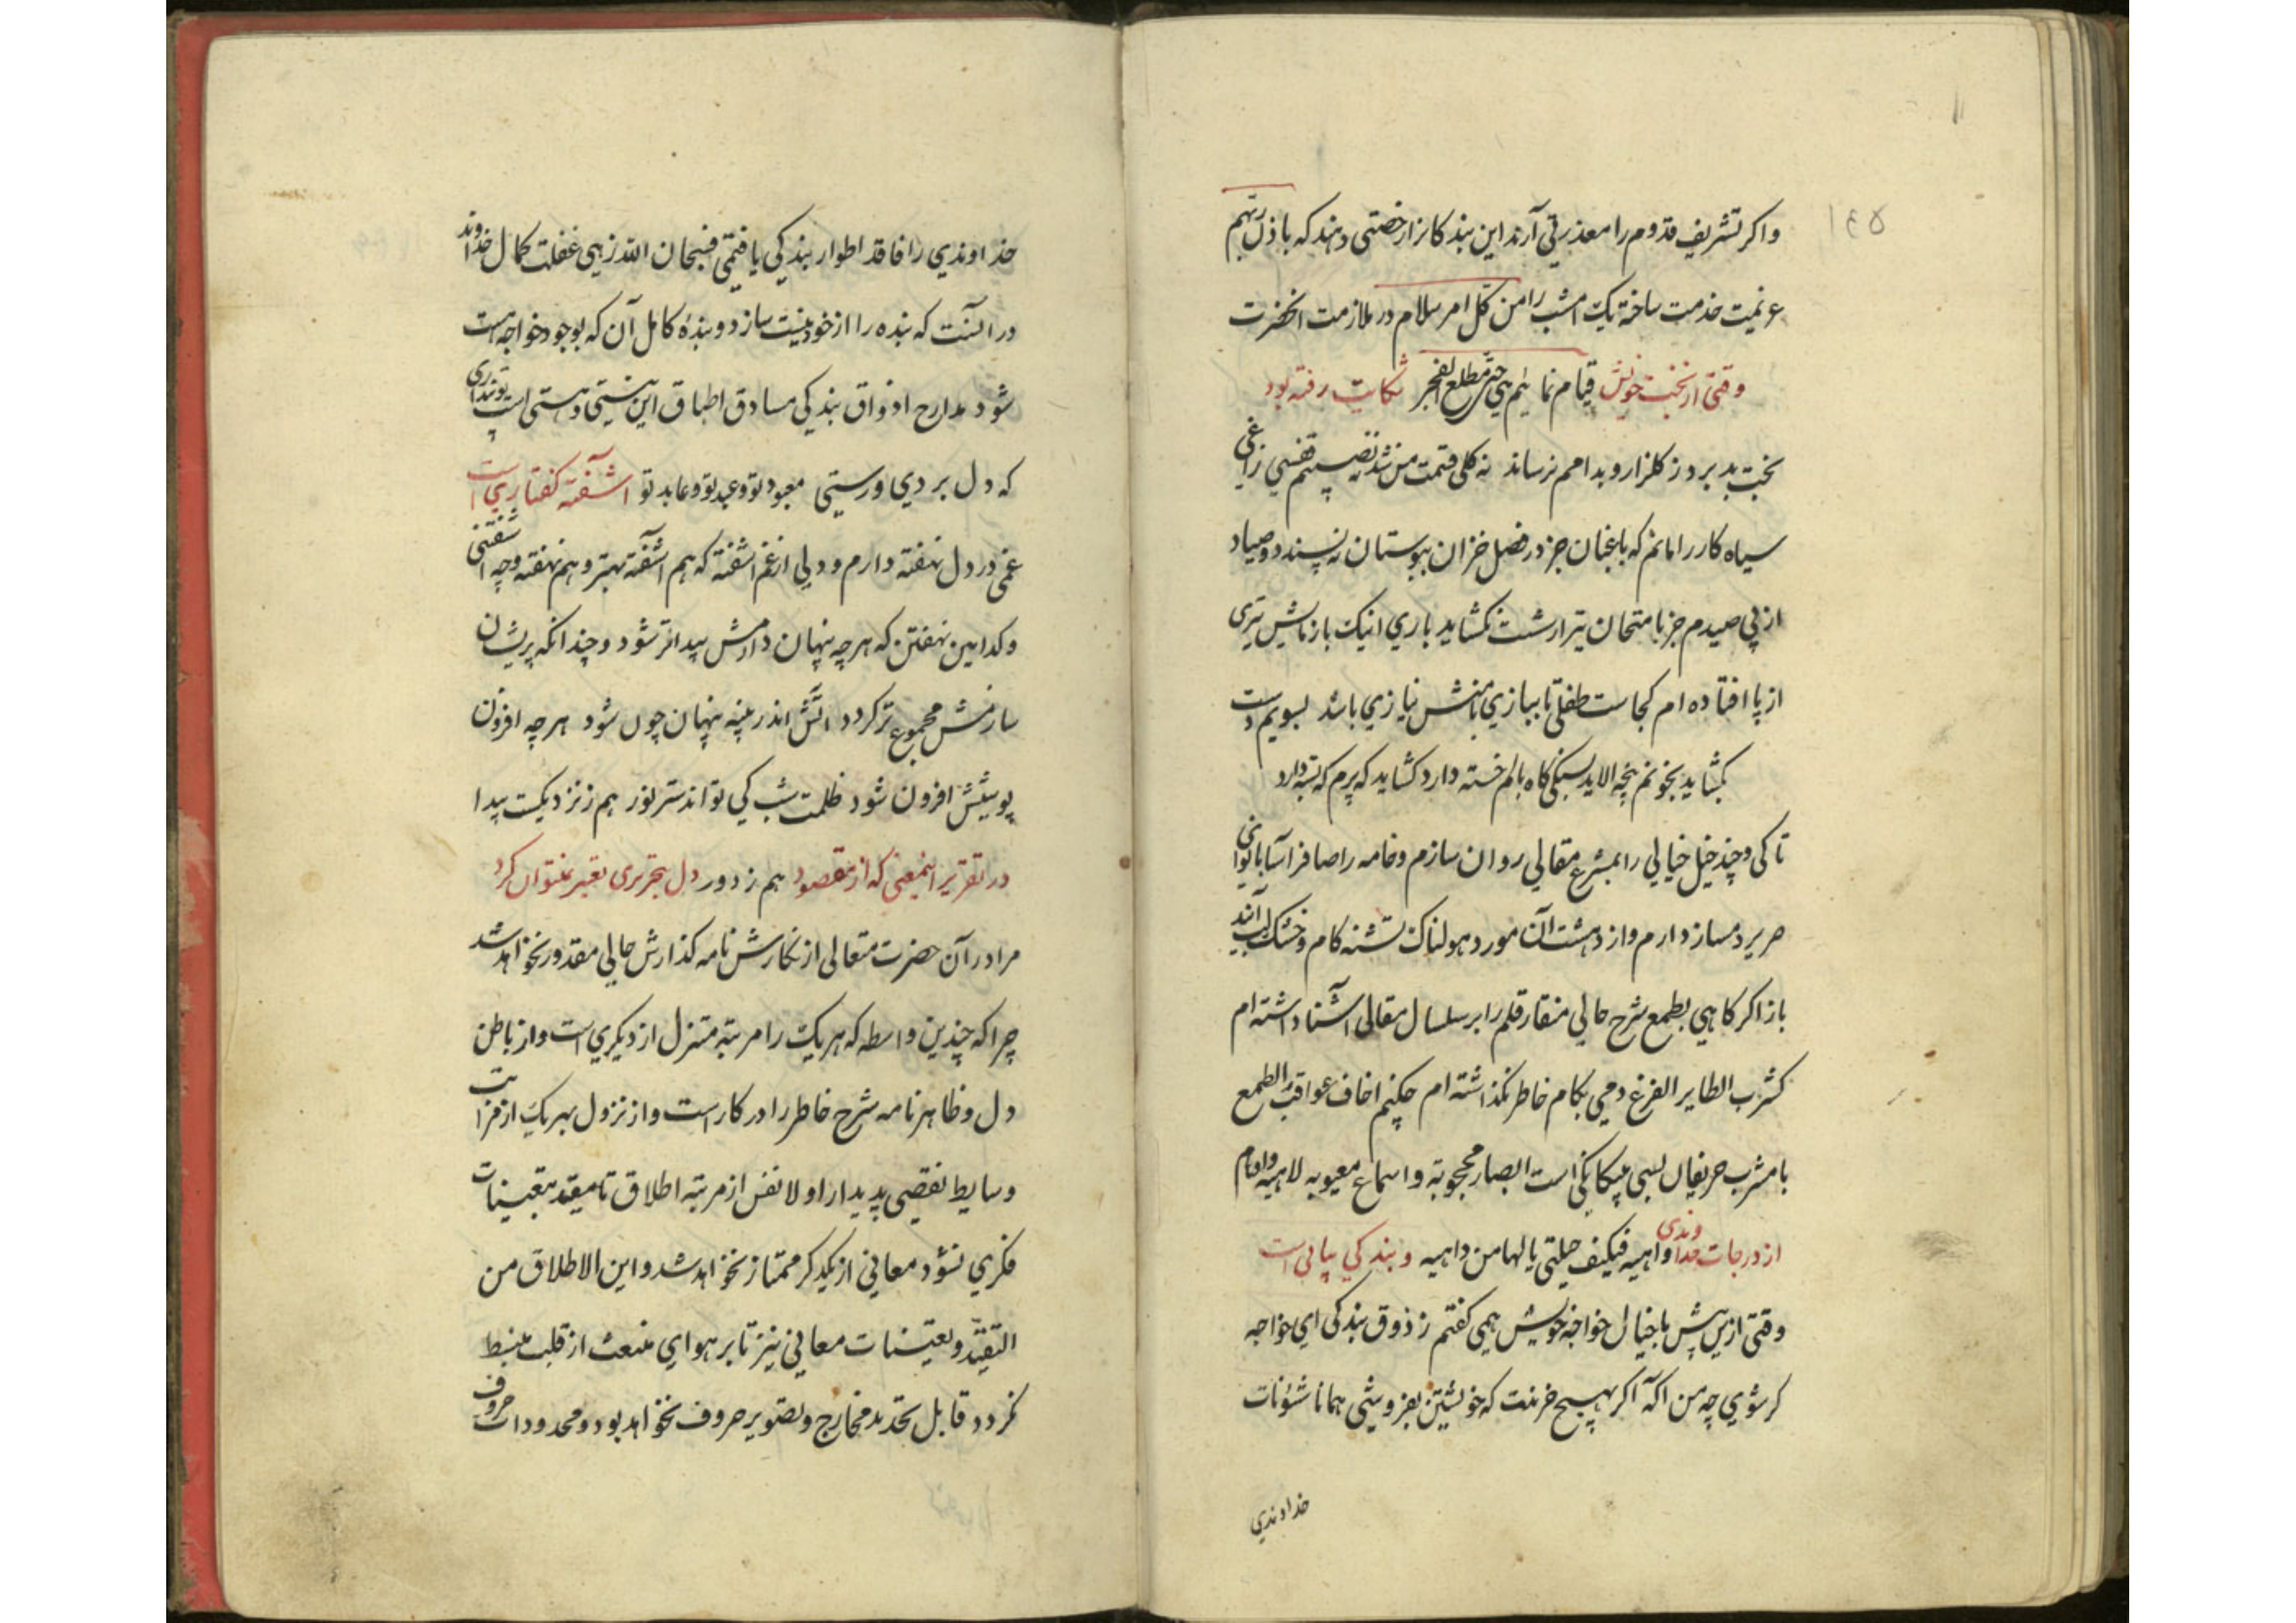 ١٤٥
واکر تشریف قدوم را معذرتی آرند این بندکانرا رخصتی دهند که باذن ربهم
عزیمت خدمت ساخته یک امشب را من کل امر سلام در ملازمت انحضرت
وقتی از بخت خویش قیام نمائیم هی حتی مطلع الفجر شکایت رفته بود
بخت بد برد ز کلزار و بدامم نرساند نه کلی قسمت من شد نه نصیبم قفسی زاغی
سیاه کار را مانم که باغبان جز در فصل خزان ببوستان نه پسندد و صیاد
از پی صیدم جز بامتحان تیر از شست نکشاید باری اینک بازمایش تیری
از پا افتاده ام کجاست طفلی تا ببازی منش نیازی باشد بسویم دست
بکشاید بخونم پنجه الاید بسنکی کاه بالم خسته دارد کشاید که پرم که بسته دارد
تا کی و چند خیل خیالی را بمشرع مقالی روان سازم و خامه را صافر آسا بانوائی
صریر دمساز دارم و از دهشت آن مورد هولناک تشنه کام و خشک لب آیند
باز اکر کاهی بطمع شرح حالی منقار قلم را بر سلسال مقالی آشنا داشته ام
کشرب الطایر الفزغ دمی بکام خاطر نکذاشته ام حکیم اخاف عواقب الطمع
با مشرب حریفان بسی بیکانکی است ابصار محجوبة و اسماع معیوبه لاهیه و افهام
از درجات خداوندی واهیه فکیف حیلتی یا لها من داهیه و بندکی بیانی است
وقتی ازین پیش با خیال خواجه خویش همی کفتم ز ذوق بندکی ای خواجه
کر شوی چه من اکه اکر بهیچ خرندت که خویشتن بفروشی همانا شئونات
خداوندی
خداوندی را فاقد اطوار بندکی یافتمی فسبحان الله زهی غفلت کمال خداوند
در انست که بنده را از خود نیست سازد و بنده کامل آن که بوجود خواجه هست
شود مدارج اذواق بندکی مصادق اطباق این نیستی و هستی است تو نداری
که دل بردی و رستی معبود تو و عبد تو و عابد تو اشفته کفتاری است
غمی در دل نهفته دارم و دلی از غم اشفته که هم اشفته بهتر و هم نهفته و چه اشفتنی
و کدامین نهفتن که هر چه پنهان دارمش پیداتر شود و چندانکه پریشان
سازمش مجموع تر کردد اتش اندر پنبه پنهان چون شود هر چه افزون
پوشیش افزون شود ظلمت شب کی تواند ستر نور هم ز نزدیکست پیدا
در تقریر اینمعنی که از مقصود هم ز دور دل بتحریری تعبیر نتوان کرد
مرا در آن حضرت متعالی از نکارش نامه کذارش حالی مقدور نخواهد شد
چرا که چندین واسطه که هر یک را مرتبه متنزل از دیکری است و از باطن
دل و ظاهر نامه شرح خاطر را در کار است و از نزول بهر یک از مراتب
وسایط نقصی پدیدار اولا نفس از مرتبه اطلاق تا مقید بتعینات
فکری نشود معانی از یکدیکر ممتاز نخواهد شد و این الاطلاق من
التقید و تعینات معانی نیز تا بر هوای منبعث از قلب منبسط
نکردد قابل تحدید مخارج و تصویر حروف نخواهد بود و محدودات حروف